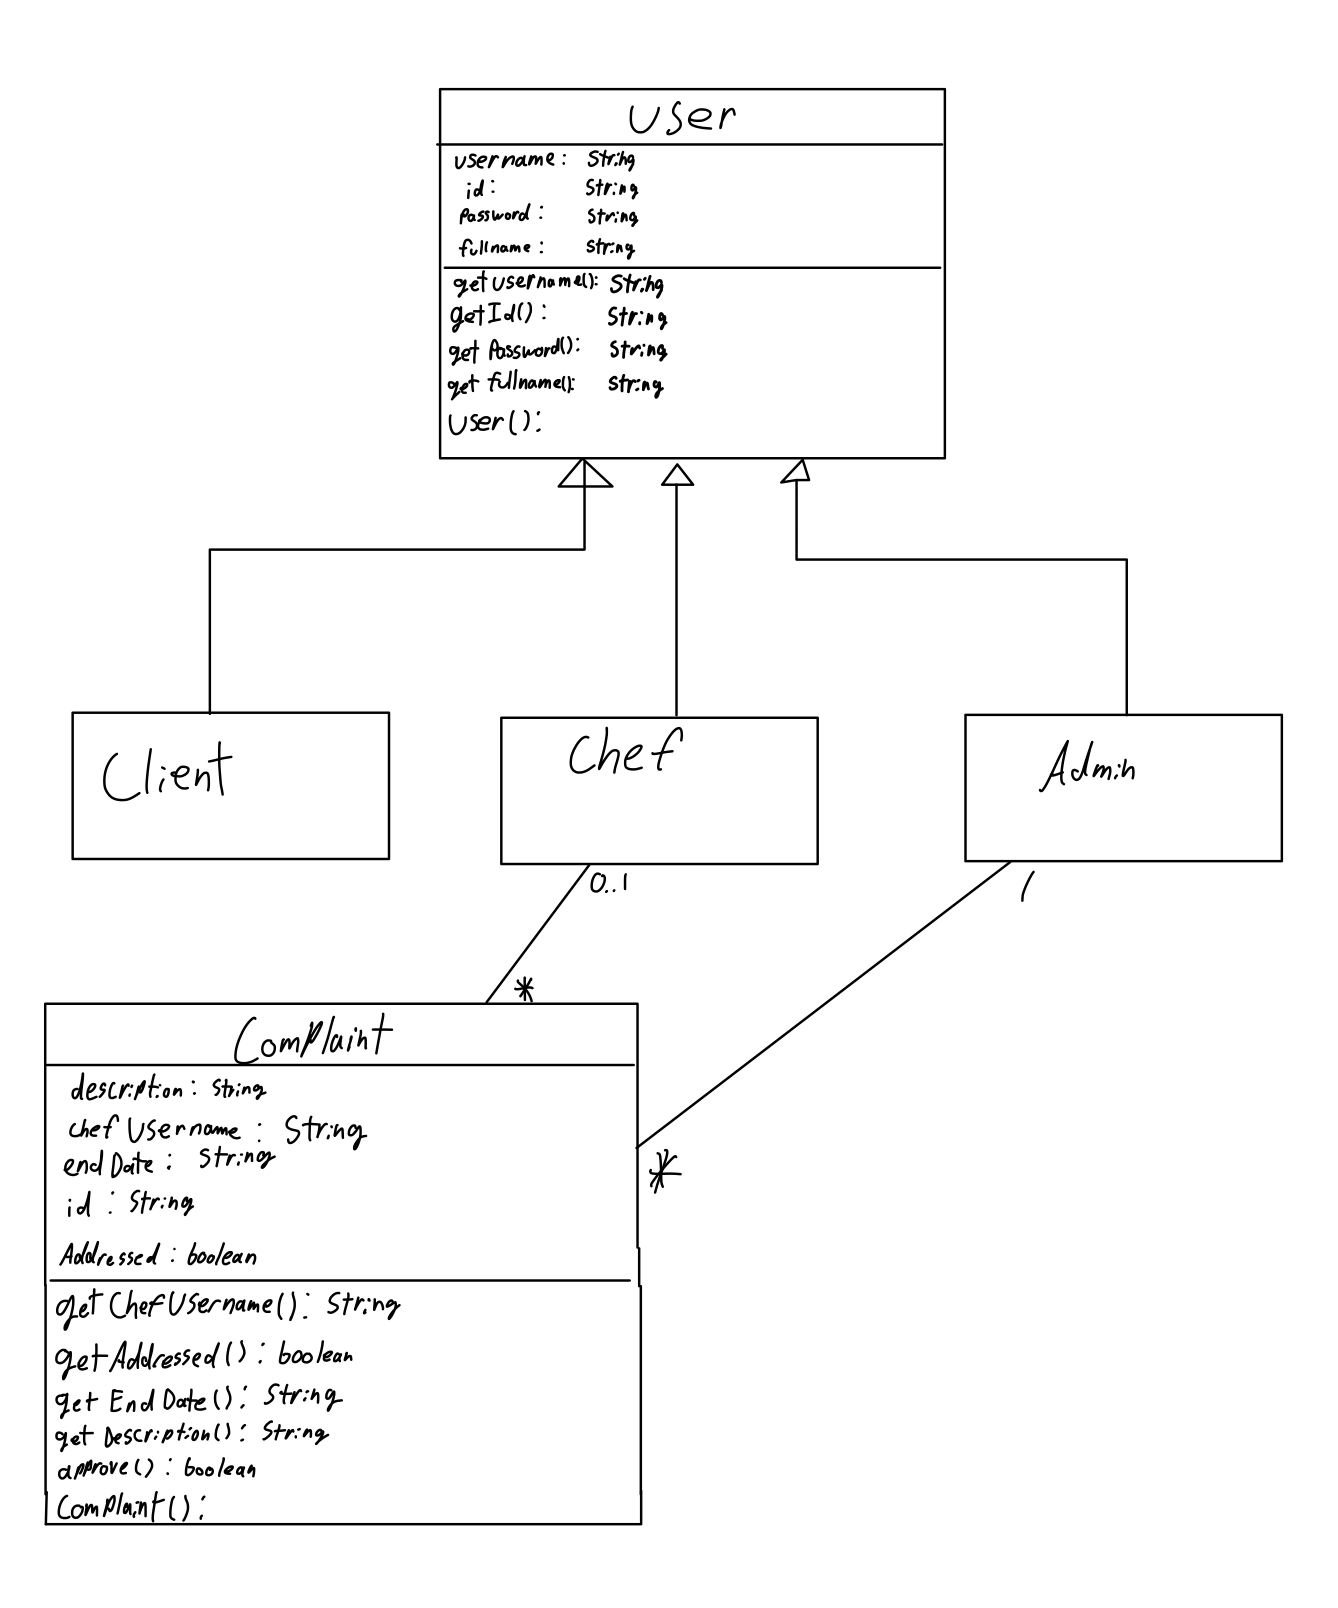 User
username: String
id: String
Password: String
fullname: String
getusername(): String
getId(): String
get Password(): String
get fullname(): String
User():
Client
Chef
Admin
0..1
1
*
Complaint
description: String
chefUsername: String
endDate: String
*
id: String
Addressed: boolean
getChefUsername(): String
getAddressed(): boolean
get EndDate(): String
get Description(): String
approve(): boolean
Complaint():